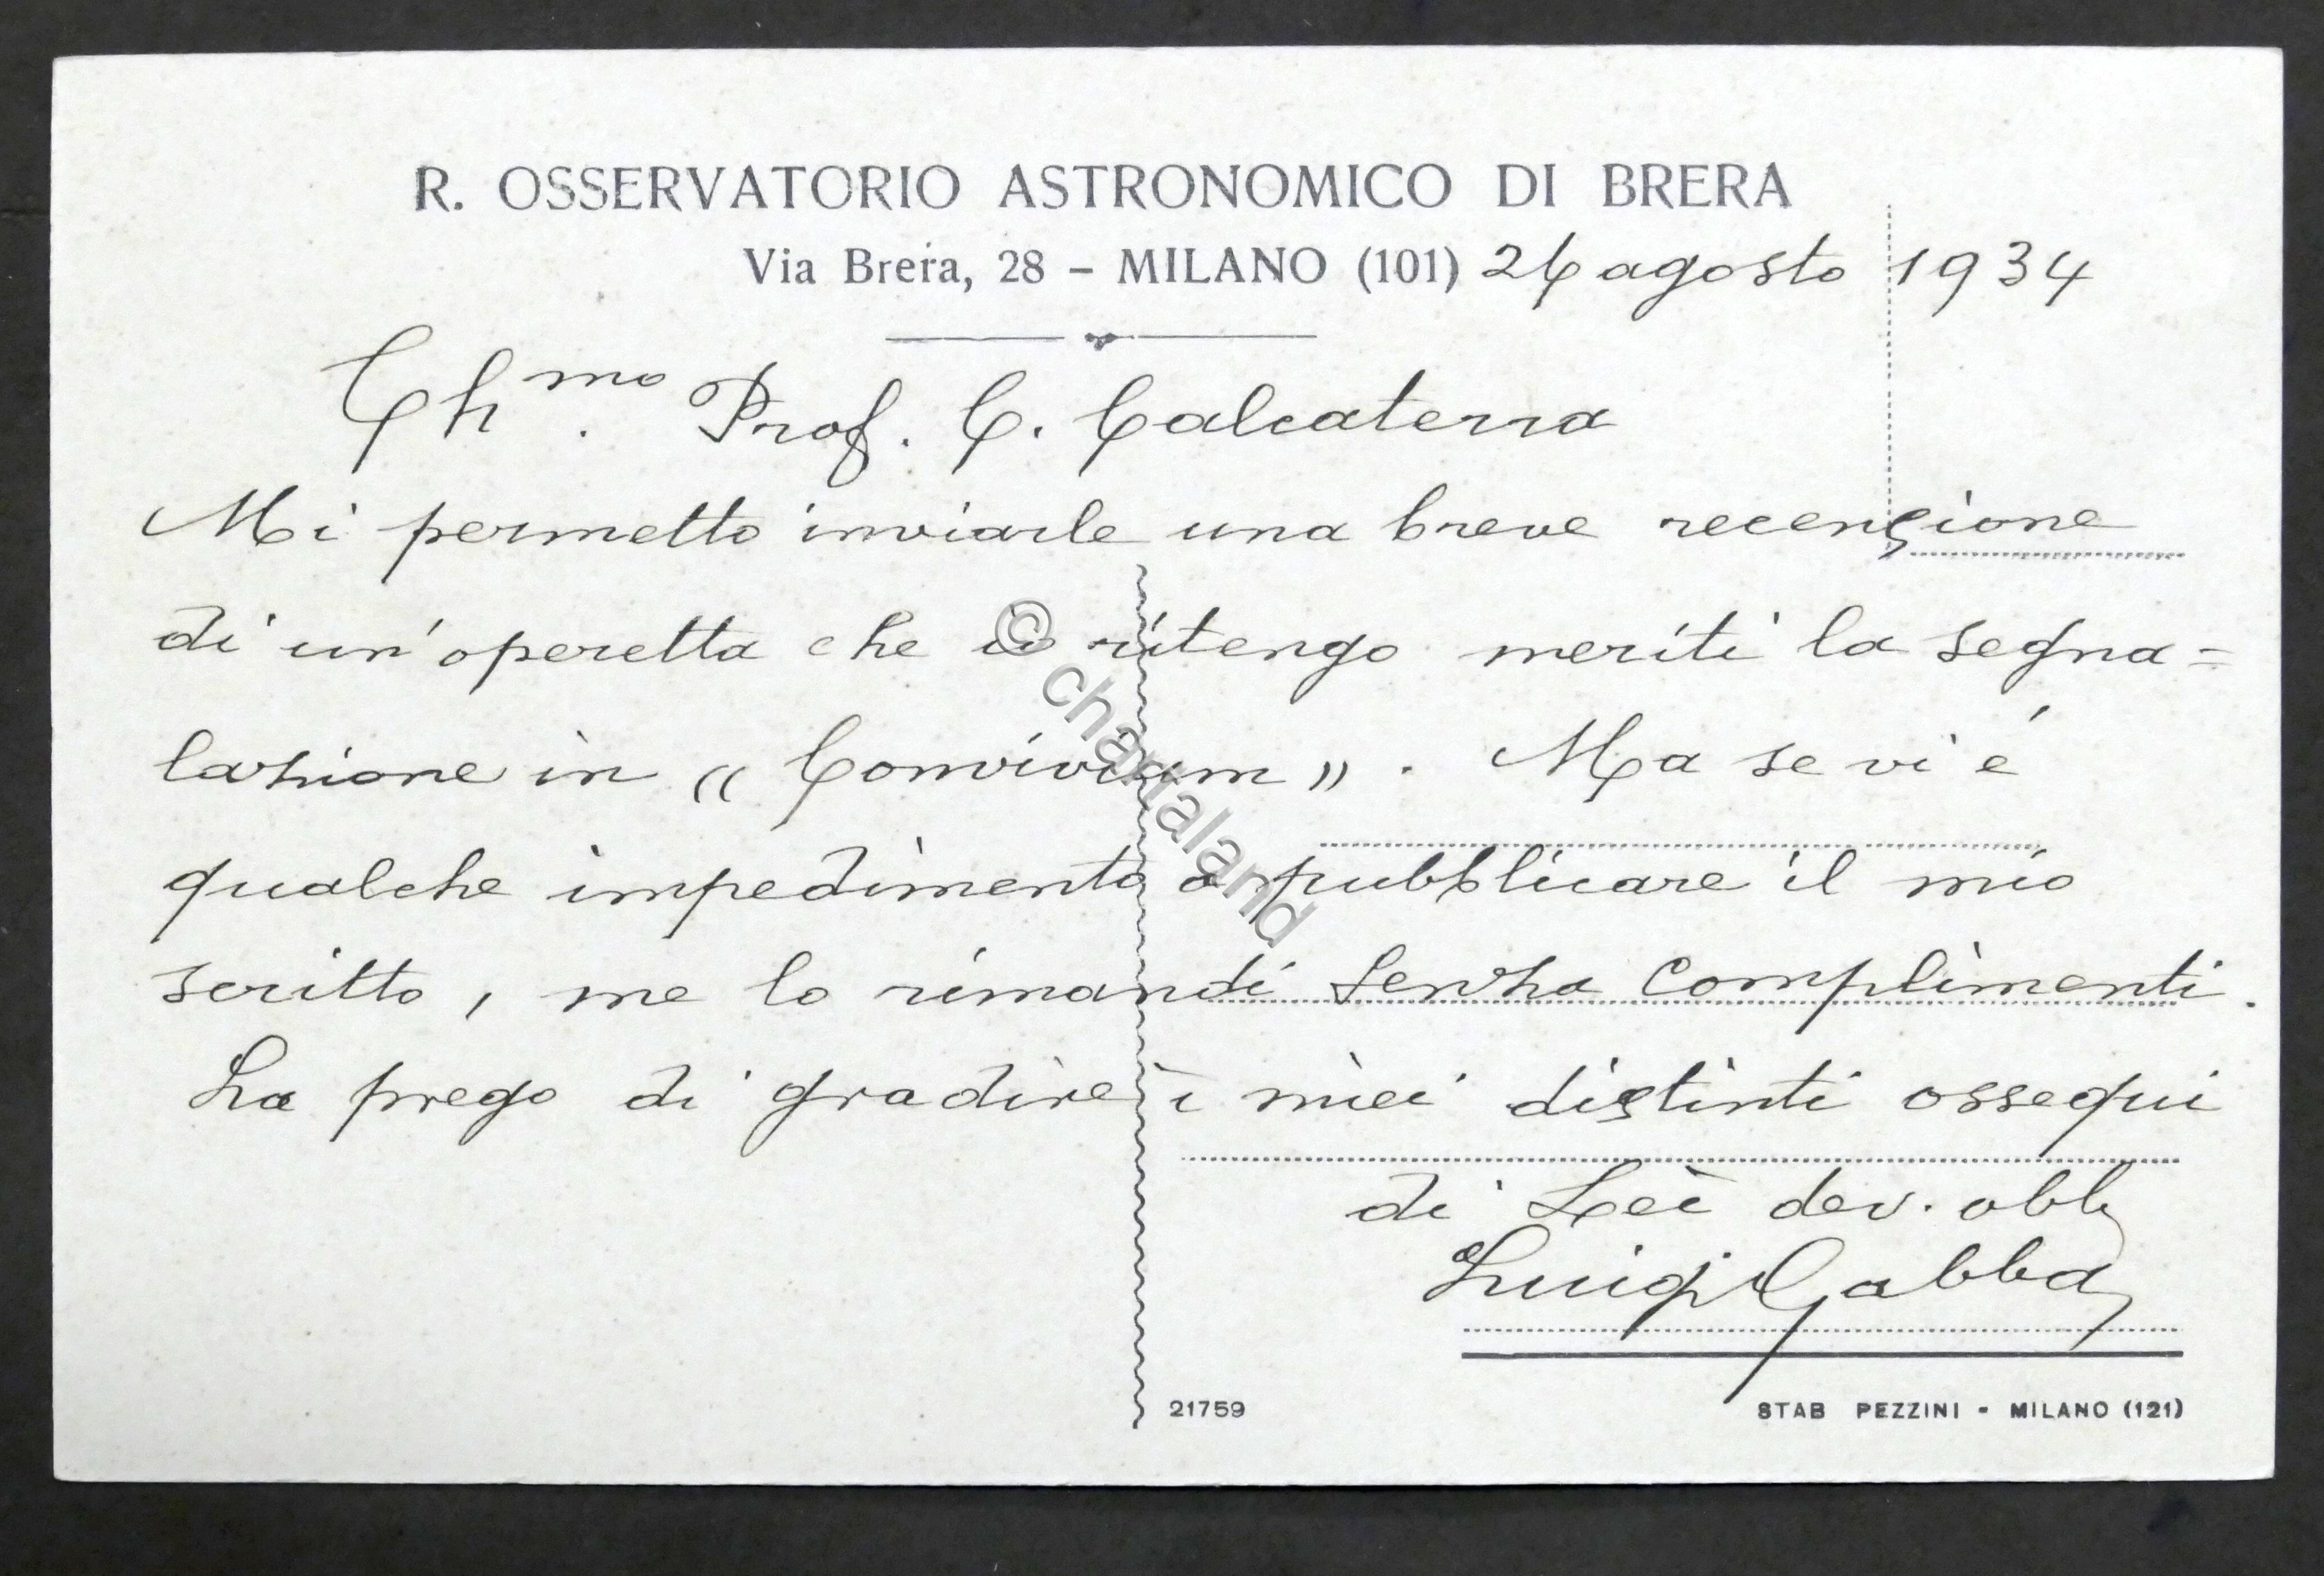 R. OSSERVATORIO ASTRONOMICO DI BRERA
Via Brera, 28 – MILANO (101) 26 agosto 1934
Chmo. Prof. C. Calcaterra
Mi permetto inviarle una breve recensione
di un'operetta che io ritengo meriti la segna=
lazione in « Convivium ». Ma se vi é
qualche impedimento a pubblicare il mio
scritto, me lo rimandi senza complimenti.
La prego di gradire i miei distinti ossequi
di Lei dev. obb
Luigi Gabba
21759
STAB PEZZINI - MILANO (121)
© chartaland